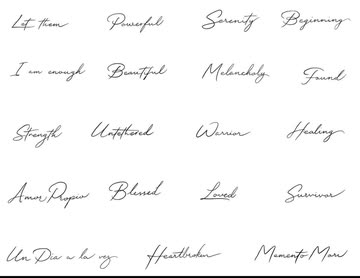 Let them Powerful Serenity Beginning
I am enough Beautiful Melancholy Found
Strength Untethered Warrior Healing
Amor Propio Blessed Loved Survivor
Un Dia a la vez Heartbroken Memento Mori